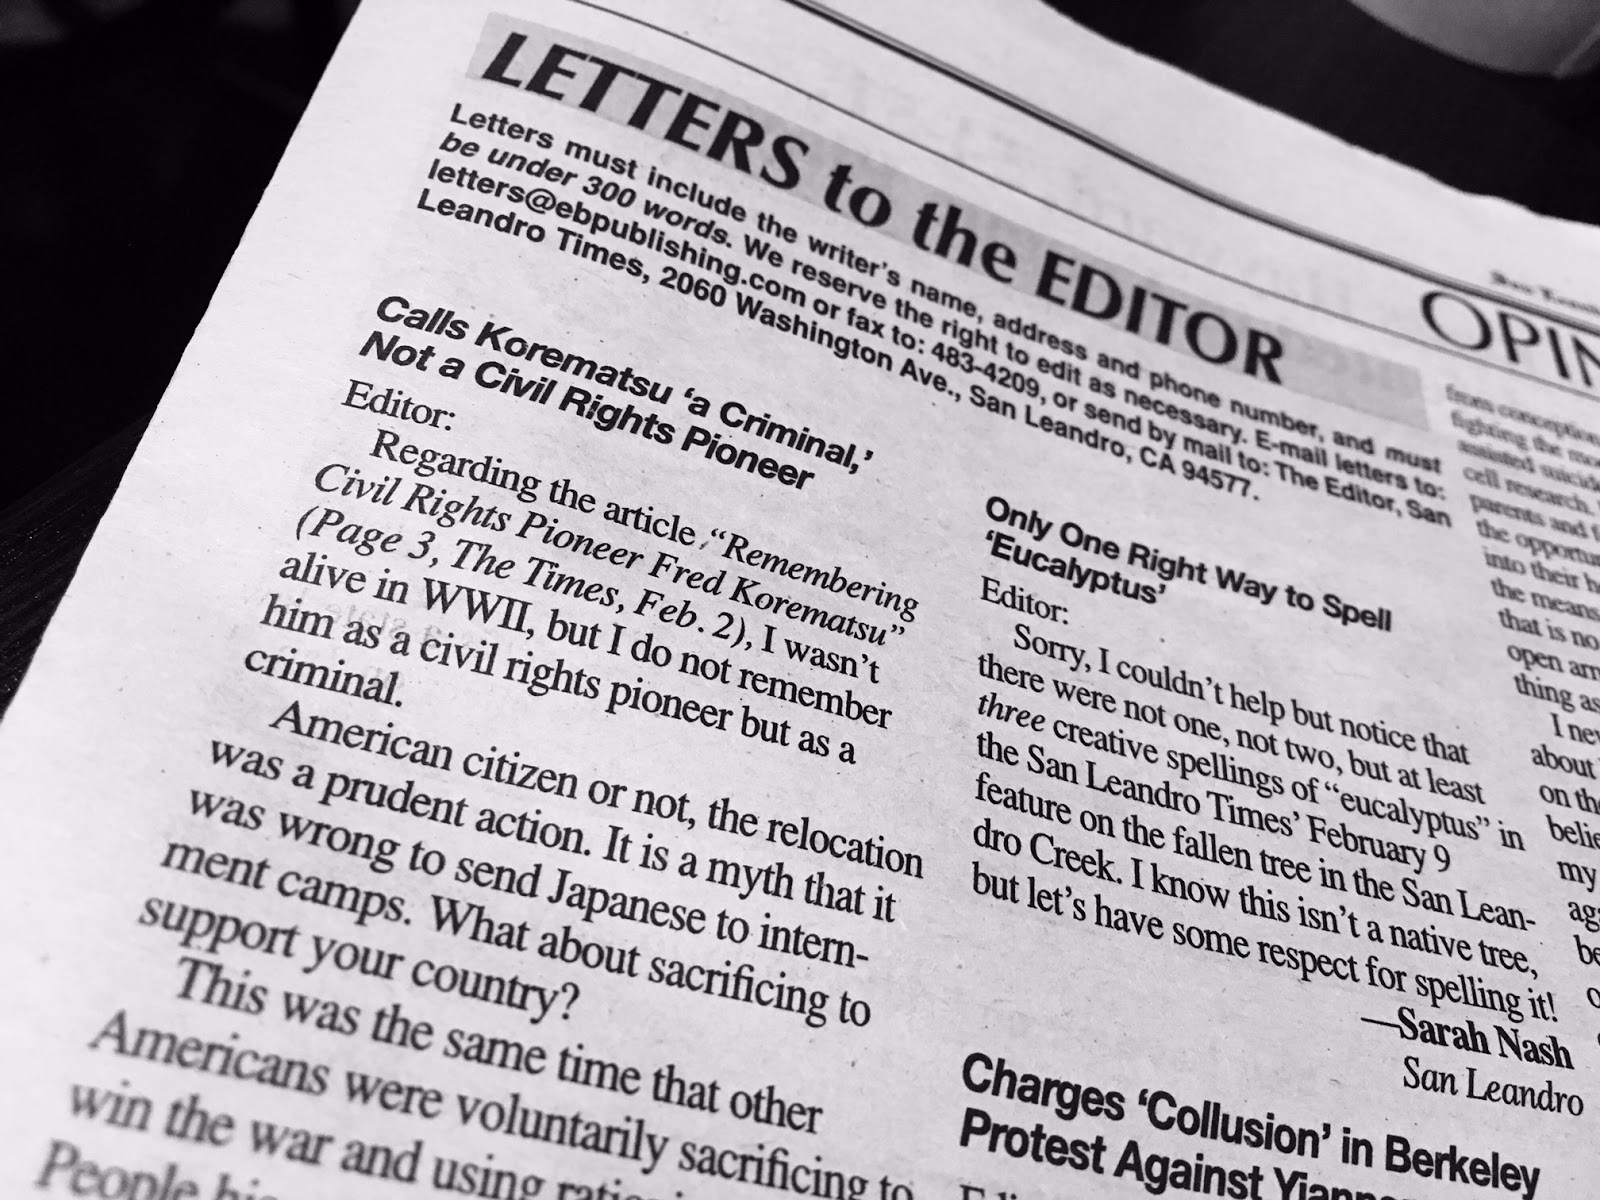 LETTERS to the EDITOR
Letters must include the writer's name, address and phone number, and must
be under 300 words. We reserve the right to edit as necessary. E-mail letters to:
letters@ebpublishing.com or fax to: 483-4209, or send by mail to: The Editor, San
Leandro Times, 2060 Washington Ave., San Leandro, CA 94577.
Calls Korematsu 'a Criminal,'
Not a Civil Rights Pioneer
Editor:
Regarding the article "Remembering
Civil Rights Pioneer Fred Korematsu"
(Page 3, The Times, Feb. 2), I wasn't
alive in WWII, but I do not remember
him as a civil rights pioneer but as a
criminal.
American citizen or not, the relocation
was a prudent action. It is a myth that it
was wrong to send Japanese to intern-
ment camps. What about sacrificing to
support your country?
This was the same time that other
Americans were voluntarily sacrificing to
win the war and using
People
Only One Right Way to Spell
'Eucalyptus'
Editor:
Sorry, I couldn't help but notice that
there were not one, not two, but at least
three creative spellings of "eucalyptus" in
the San Leandro Times' February 9
feature on the fallen tree in the San Lean-
dro Creek. I know this isn't a native tree,
but let's have some respect for spelling it!
—Sarah Nash
San Leandro
Charges 'Collusion' in Berkeley
Protest Against
OPIN
from conception
fighting the
assisted
cell research.
parents and
the
into their
the means
that is no
open
thing as
I
about
on the
my